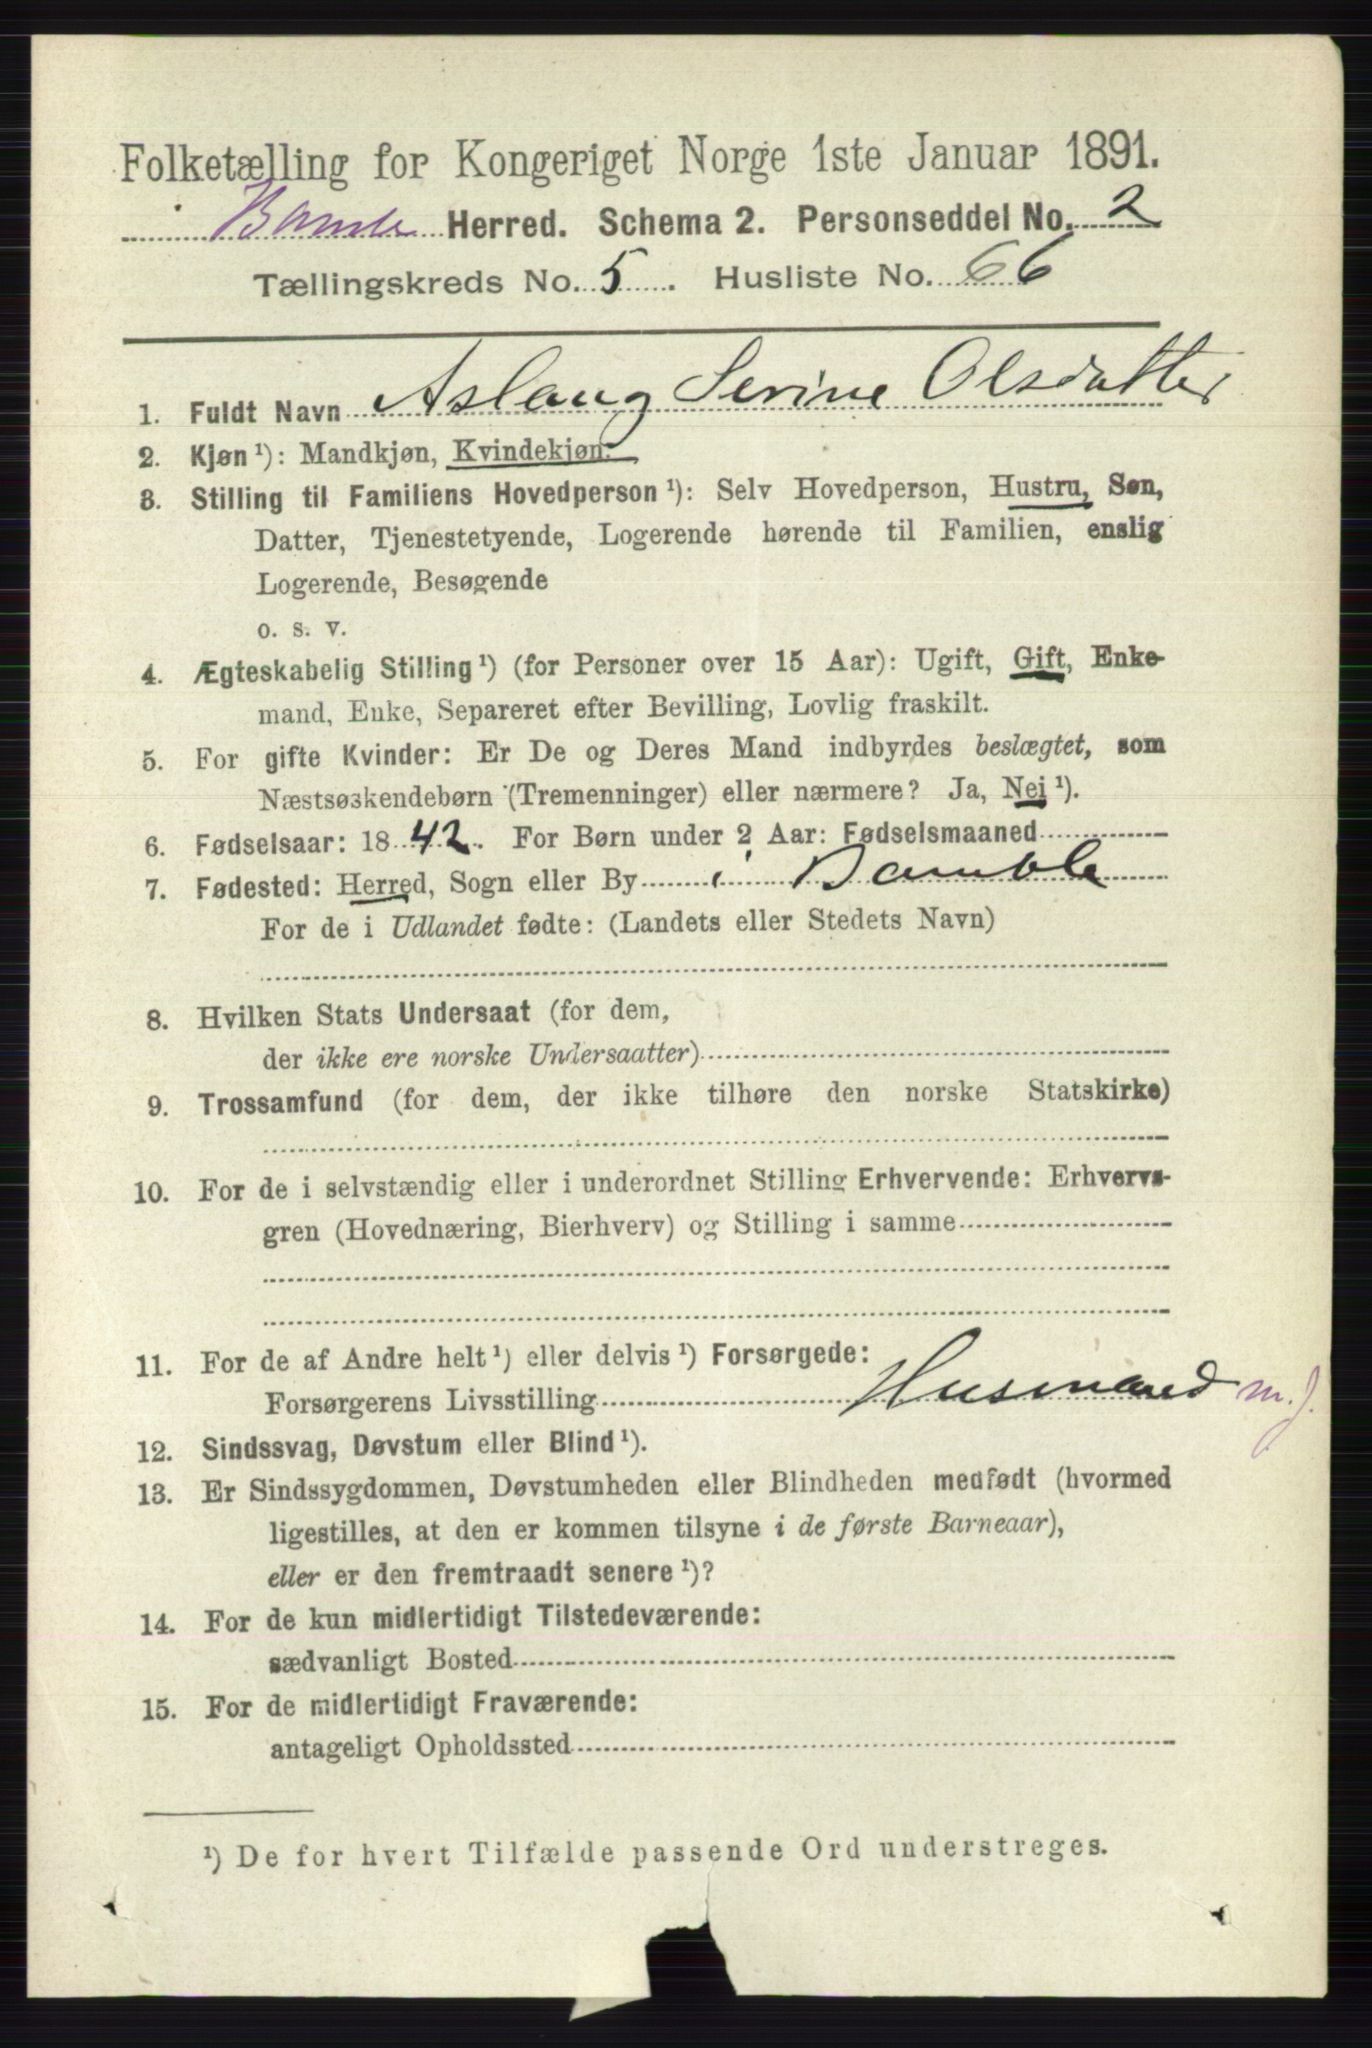 Folketælling for Kongeriget Norge 1ste Januar 1891.
Bamle Herred. Schema 2. Personseddel No. 2
Tællingskreds No. 5. Husliste No. 66
1. Fuldt Navn Aslaug Serine Olsdatter
2. Kjøn¹): Mandkjøn, Kvindekjøn.
3. Stilling til Familiens Hovedperson¹): Selv Hovedperson, Hustru, Søn,
Datter, Tjenestetyende, Logerende hørende til Familien, enslig
Logerende, Besøgende
o. s. v.
4. Ægteskabelig Stilling¹) (for Personer over 15 Aar): Ugift, Gift, Enke-
mand, Enke, Separeret efter Bevilling, Lovlig fraskilt.
5. For gifte Kvinder: Er De og Deres Mand indbyrdes beslægtet, som
Næstsøskendebørn (Tremenninger) eller nærmere? Ja, Nei¹).
6. Fødselsaar: 1842. For Børn under 2 Aar: Fødselsmaaned
7. Fødested: Herred, Sogn eller By i Bamble
For de i Udlandet fødte: (Landets eller Stedets Navn)
8. Hvilken Stats Undersaat (for dem,
der ikke ere norske Undersaatter)
9. Trossamfund (for dem, der ikke tilhøre den norske Statskirke)
10. For de i selvstændig eller i underordnet Stilling Erhvervende: Erhvervs-
gren (Hovednæring, Bierhverv) og Stilling i samme
11. For de af Andre helt¹) eller delvis¹) Forsørgede:
Forsørgerens Livsstilling Husmand m. J.
12. Sindssvag, Døvstum eller Blind¹).
13. Er Sindssygdommen, Døvstumheden eller Blindheden medfødt (hvormed
ligestilles, at den er kommen tilsyne i de første Barneaar),
eller er den fremtraadt senere¹)?
14. For de kun midlertidigt Tilstedeværende:
sædvanligt Bosted
15. For de midlertidigt Fraværende:
antageligt Opholdssted
¹) De for hvert Tilfælde passende Ord understreges.